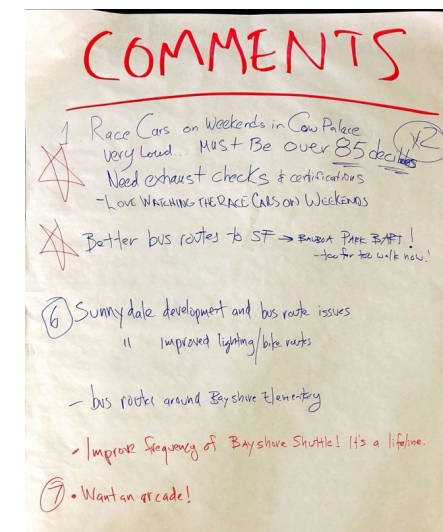 COMMENTS
1. Race Cars on Weekends in Cow Palace
very Loud... MUST Be over 85 decibles
x2
Need exhaust checks & certifications
- LOVE WATCHING THE RACE CARS ON WEEKENDS
Better bus routes to SF → BALBOA PARK BART!
- too far to walk now!
6 Sunnydale development and bus route issues
" Improved lighting/bike routes
- bus route around Bayshore Elementary
- Improve frequency of BAYshore Shuttle! It's a lifeline.
7 • Want an arcade!